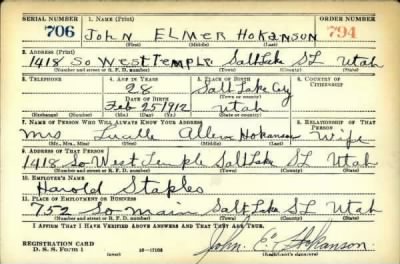 SERIAL NUMBER 1. NAME (Print) ORDER NUMBER
706 JOHN ELMER HOKANSON 794
(First) (Middle) (Last)
2. ADDRESS (Print)
1418 So West Temple Salt Lake SL Utah
(Number and street or R. F. D. number) (Town) (County) (State)
3. TELEPHONE 4. AGE IN YEARS 5. PLACE OF BIRTH 6. COUNTRY OF CITIZENSHIP
28 Salt Lake City
DATE OF BIRTH (Town or county)
Feb 25 1912 Utah
(Exchange) (Number) (Mo.) (Day) (Yr.) (State or country)
7. NAME OF PERSON WHO WILL ALWAYS KNOW YOUR ADDRESS 8. RELATIONSHIP OF THAT PERSON
Mrs Lucille Allen Hokanson Wife
(Mr., Mrs., Miss) (First) (Middle) (Last)
9. ADDRESS OF THAT PERSON
1418 So West Temple Salt Lake SL Utah
(Number and street or R. F. D. number) (Town) (County) (State)
10. EMPLOYER'S NAME
Harold Staples
11. PLACE OF EMPLOYMENT OR BUSINESS
752 So Main Salt Lake SL Utah
(Number and street or R. F. D. number) (Town) (County) (State)
I AFFIRM THAT I HAVE VERIFIED ABOVE ANSWERS AND THAT THEY ARE TRUE.
REGISTRATION CARD
D. S. S. FORM 1 (over) John E. Hokanson.
(Registrant's signature)